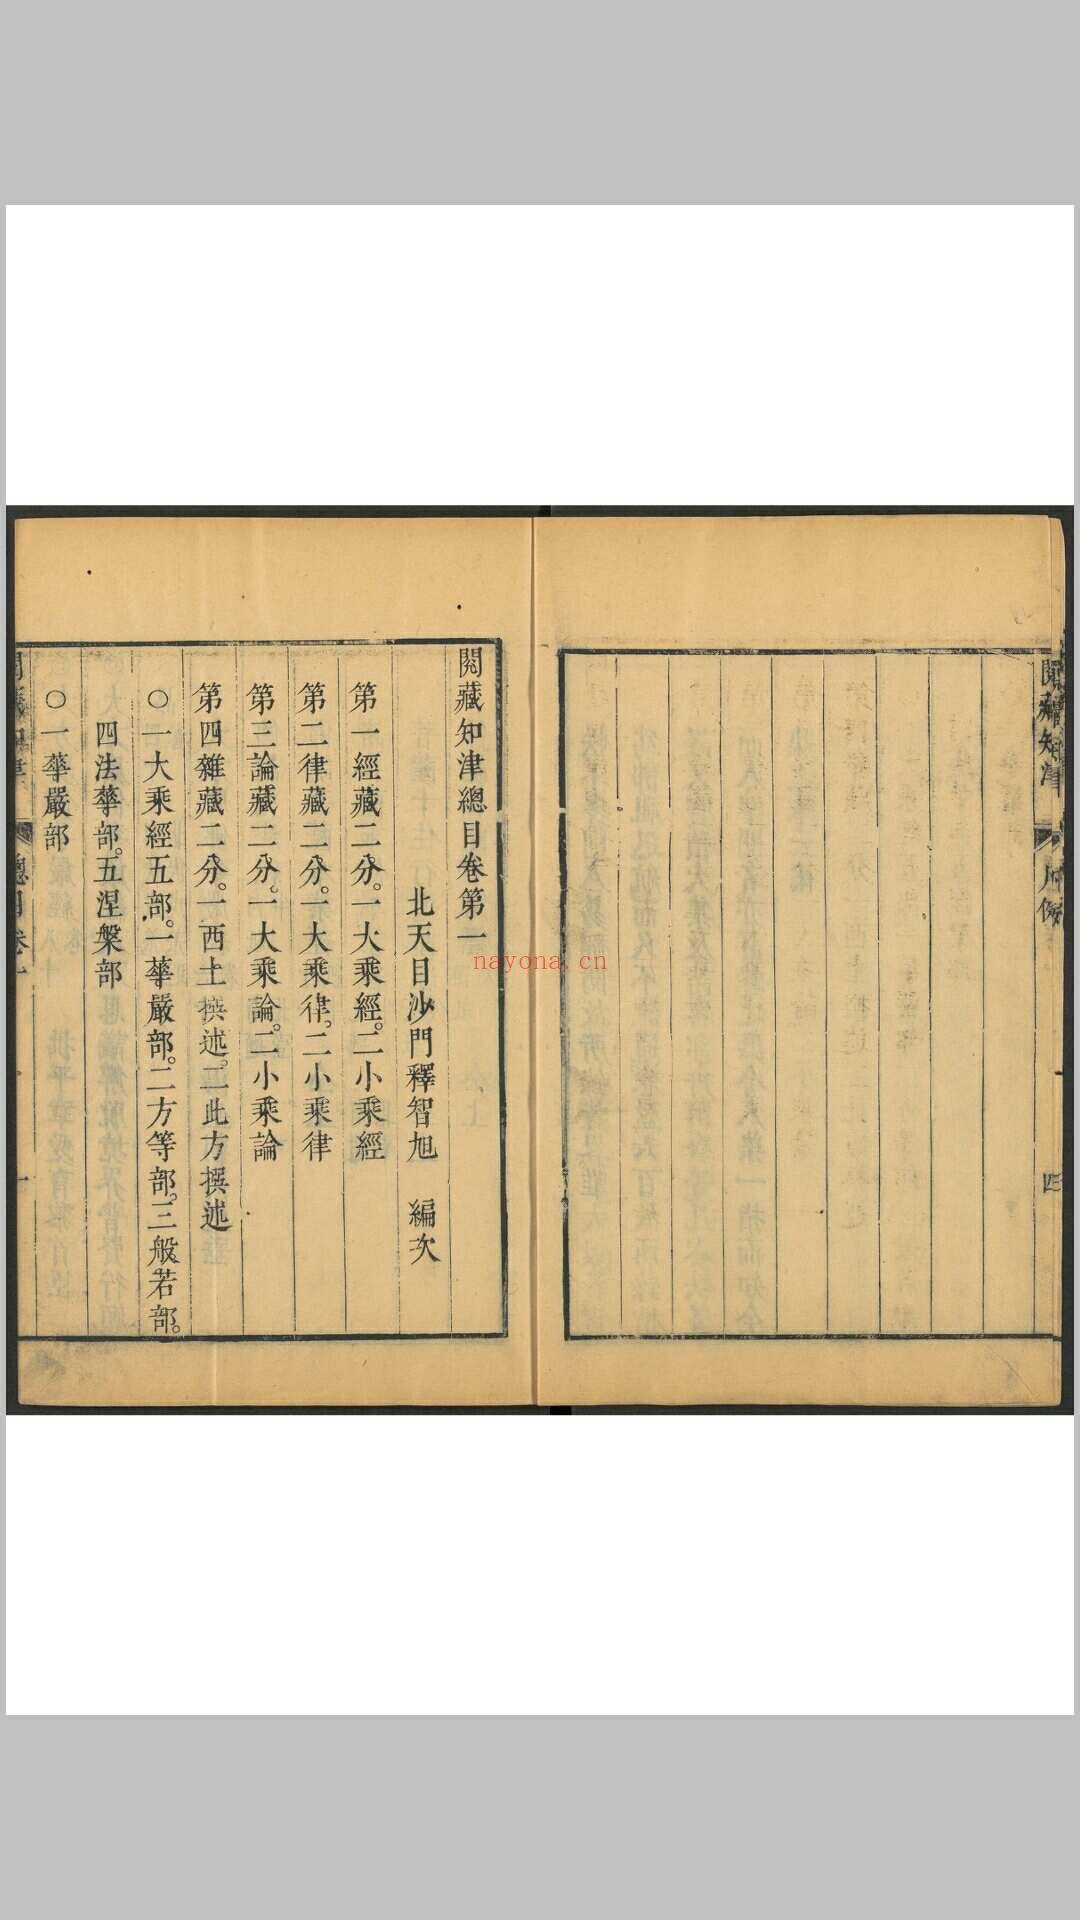 閱藏知津
凡例
四
閱藏知津總目卷第一
北天目沙門釋智旭　編次
第一經藏二分。一大乘經。二小乘經
第二律藏二分。一大乘律。二小乘律
第三論藏二分。一大乘論。二小乘論
第四雜藏二分。一西土撰述。二此方撰述
○一大乘經五部。一華嚴部。二方等部。三般若部。
四法華部。五涅槃部
○一華嚴部
閱藏知津
總目卷一
一
nayona.cn